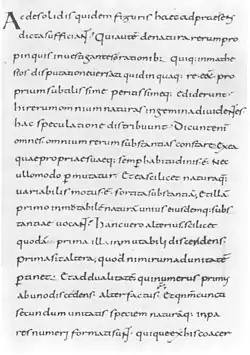 Ac desolidis quidem figuris haec ad praesens
dicta sufficiant. Qui autem de natura rerum pro
pinquis investigantes rationibus Quiq; in mathe
seos disputatione versati quid in quaq; re
prium subtilissime peritissimeq; ediderunt
hi rerum omnium naturas in gemina dividentes
hac speculatione distribuunt. Dicunt enim
omnes omnium rerum substantias constare ex ea
quae propriae suaeq; semper habitudinis est. Nec
ullo modo permutatur. Et ea scilicet natura quae
variabilis motus est sortita substantiam. Et illam
primo inmutabilem naturam unius eiusdemq; subs
tantiae vocant. Hanc vero alterius scilicet
quod a prima illa inmutabili discedens
prima sit altera, quod nimirum ad unitatem
pertinet. Et ad dualitatem qui numerus primus
ab uno discedens. alter factus est. Et quoniam cuncti
secundum unitatis speciem naturamq; inpa
res numeri formati sunt. quique ex his coacer